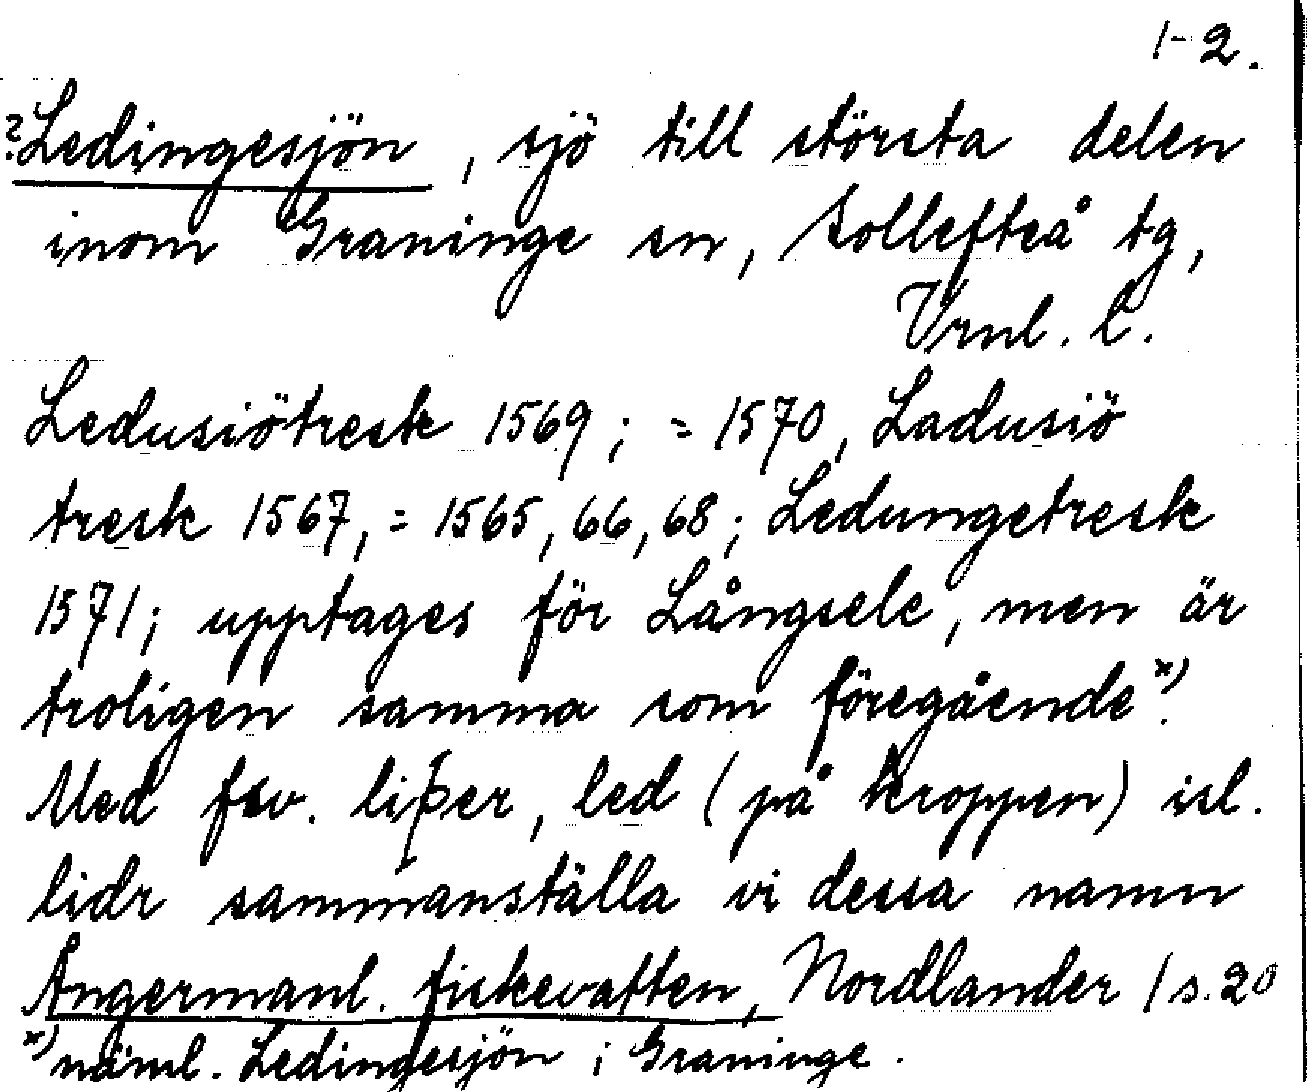 1-2.
?Ledingesjön, sjö till största delen
inom Graninge sn, Sollefteå tg,
Vrnl. l.
Ledusiötresk 1569; = 1570, Ladusiö
tresk 1567, = 1565, 66, 68; Ledungetresk
1571; upptages för Långsele, men är
troligen samma som föregående x).
Med fsv. liþer, led (på kroppen) isl.
lidr sammanställa vi dessa namn
Ångermanl. fiskevatten, Nordlander 1 s. 20
x) näml. Ledingesjön i Graninge.